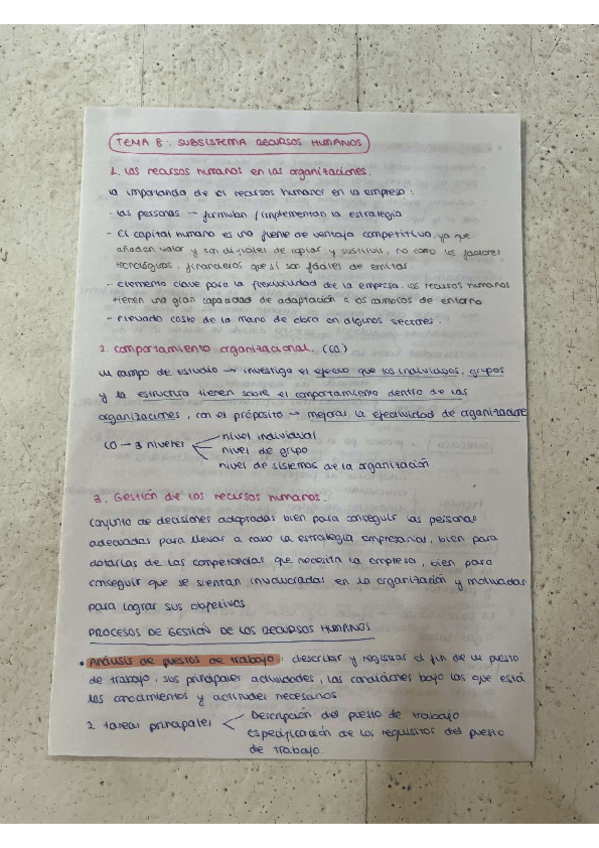 TEMA 8: SUBSISTEMA RECURSOS HUMANOS
1. Los recursos humanos en las organizaciones.
La importancia de el recursos humanos en la empresa:
- Las personas → formulan / implementan la estrategia
- El capital humano es una fuente de ventaja competitiva, ya que
añaden valor y son difíciles de copiar y sustituir, no como los factores
tecnológicos, financieros que sí son fáciles de emitar
- Elemento clave para la flexibilidad de la empresa. Los recursos humanos
tienen una gran capacidad de adaptación a os cambios de entorno
- Elevado coste de la mano de obra en algunos sectores.
2. Comportamiento organizacional. (CO)
un campo de estudio → investiga el efecto que los individuos, grupos
y la estructura tienen sobre el comportamiento dentro de las
organizaciones, con el propósito → mejorar la efectividad de organizacione
CO → 3 niveles
nivel individual
nivel de grupo
nivel de sistemas de la organización
3. Gestión de los recursos humanos.
Conjunto de decisiones adoptadas bien para conseguir las personas
adecuadas para llevar a cabo la estrategia empresarial, bien para
dotarlas de las competencias que necesita la empresa, bien para
conseguir que se sientan involucradas en la organización y motivadas
para lograr sus objetivos
PROCESOS DE GESTIÓN DE LOS RECURSOS HUMANOS
• Análisis de puestos de trabajo: describir y registrar el fin de un puesto
de trabajo, sus principales actividades, las condiciones bajo las que está
los conocimientos y actitudes necesarios
2 tareas principales
Descripción del puesto de trabajo
especificación de los requisitos del puesto
de trabajo.